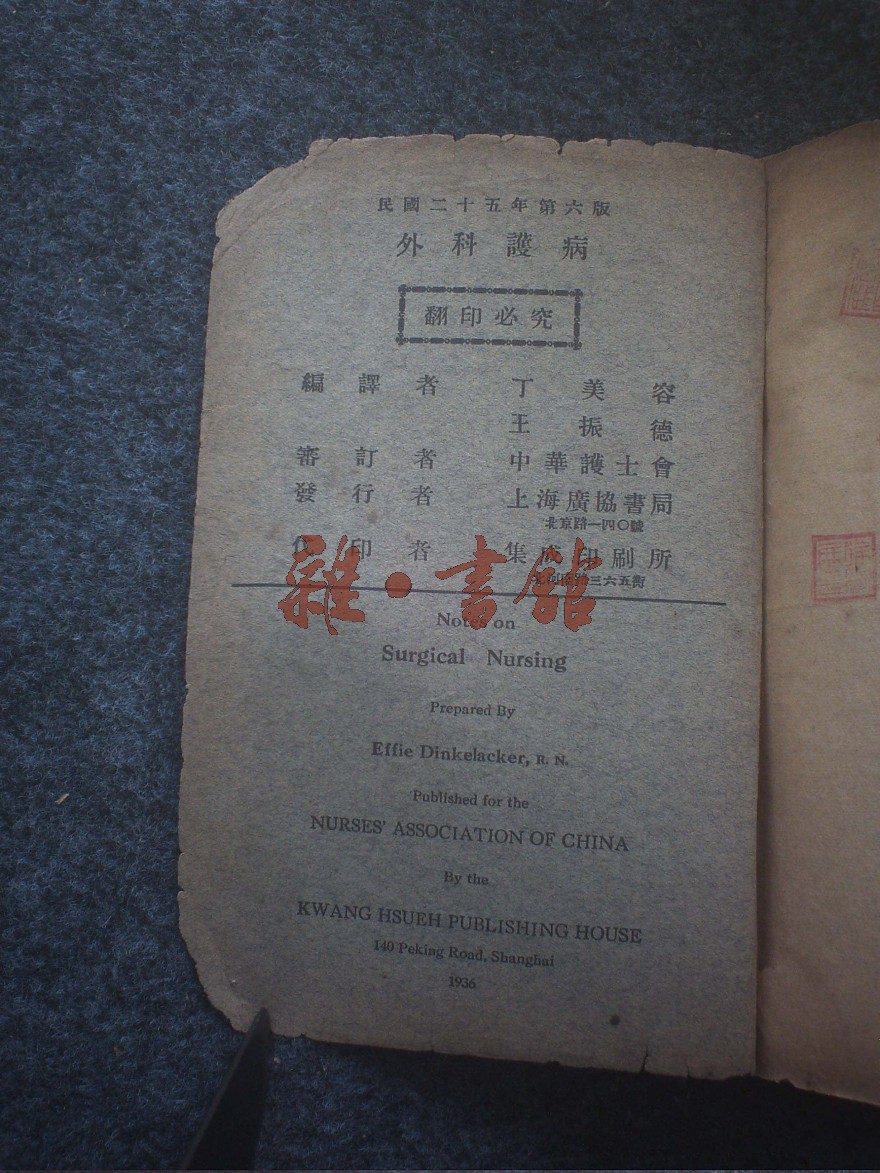 民國二十五年第六版
外科護病
翻印必究
編譯者 丁美容
王振德
審訂者 中華護士會
發行者 上海廣協書局
北京路一四〇號
代印者 集成印刷所
三六五衖
雜·書館
Notes on
Surgical Nursing
Prepared By
Effie Dinkelacker, R. N.
Published for the
NURSES' ASSOCIATION OF CHINA
By the
KWANG HSUEH PUBLISHING HOUSE
140 Peking Road, Shanghai
1936